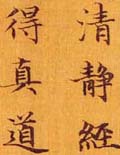 清靜經
得真道